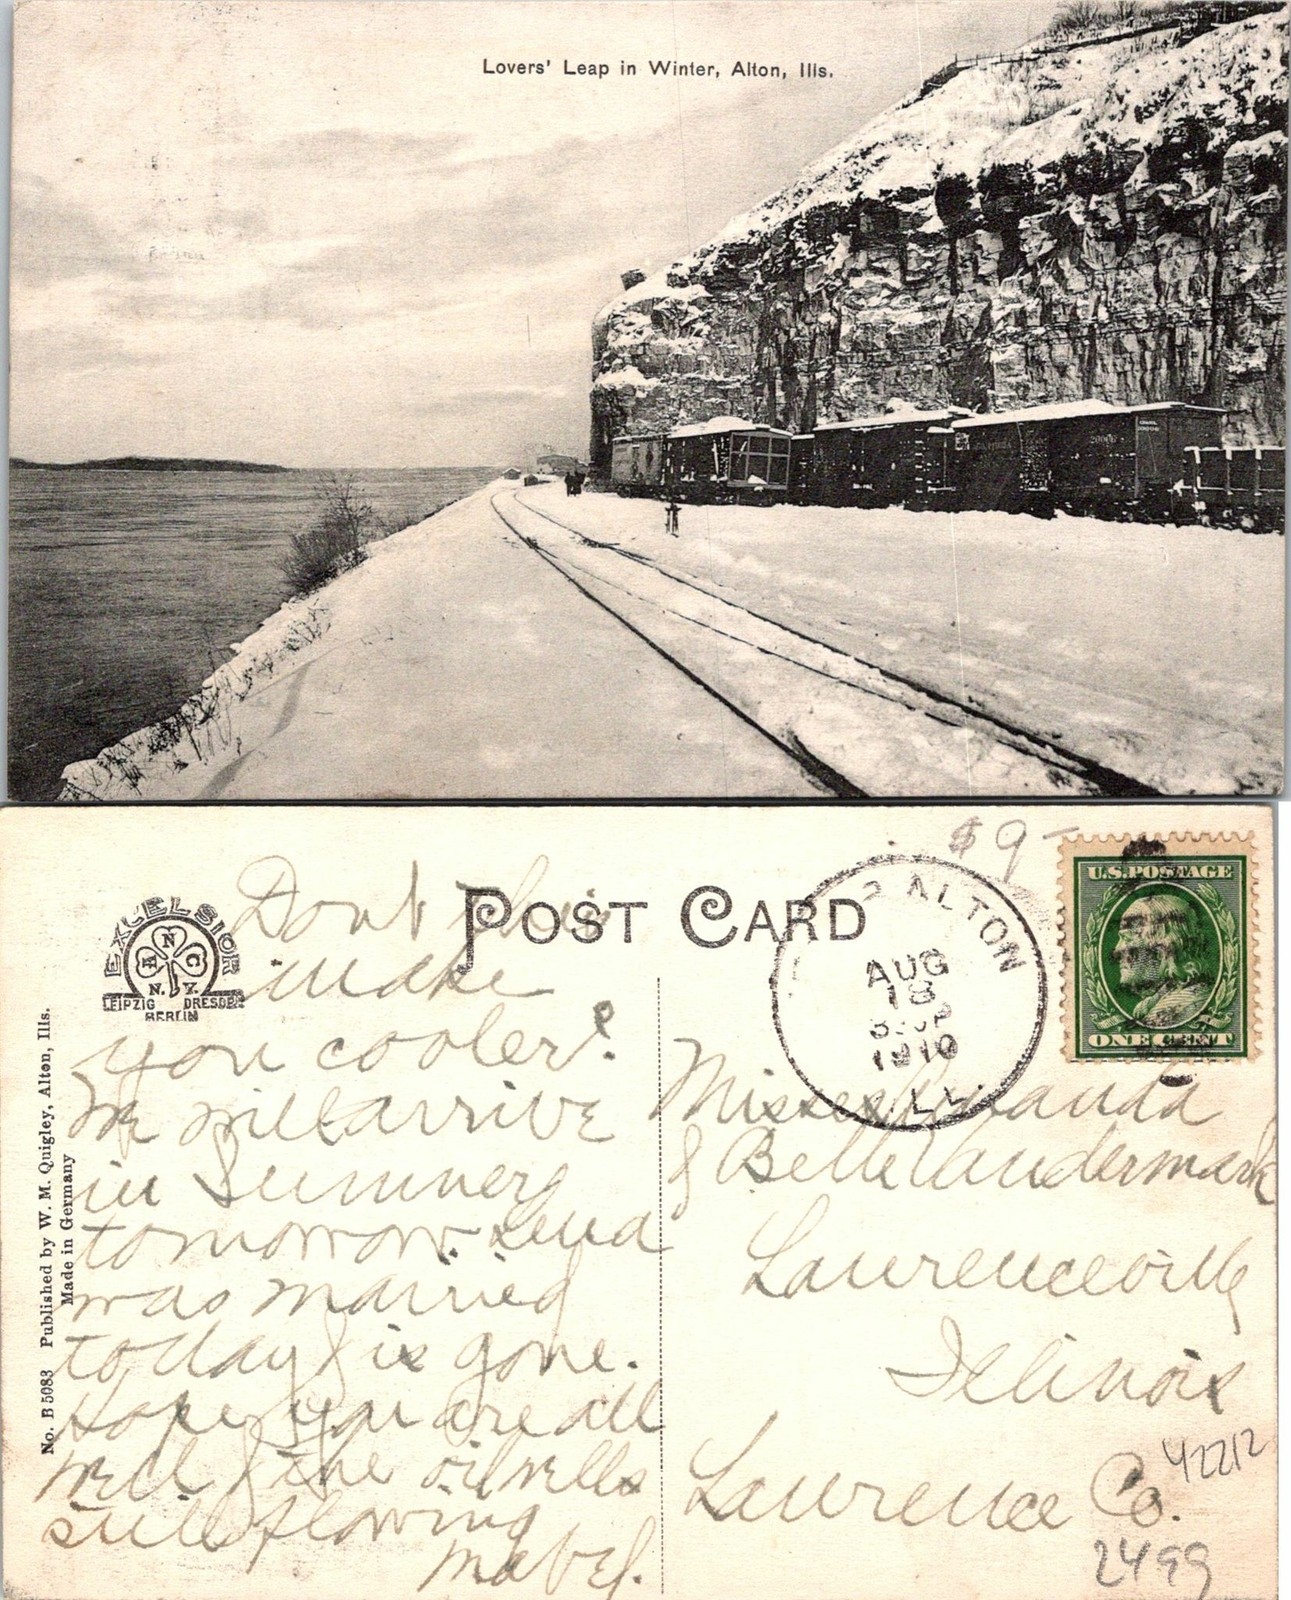 Lovers' Leap in Winter, Alton, Ills.
20006
$9-
POST CARD
EXCELSIOR
A N C
N. Y.
LEIPZIG DRESDEN
BERLIN
ALTON
AUG
18
1910
ILL.
U.S. POSTAGE
ONE CENT
No. B 5083 Published by W. M. Quigley, Alton, Ills.
Made in Germany
Dont this
make
you cooler?
We will arrive
in Sumner
tomorrow. Lena
was married
today & is gone.
Hope you are all
well & the oil wells
still flowing
Mabel.
Misses Amanda
& Belle Vandermark
Lawrenceville
Illinois
Lawrence Co.
42212
2499